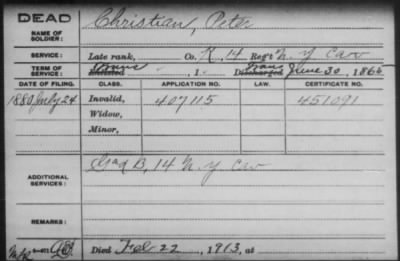 DEAD
NAME OF SOLDIER: Christian, Peter
SERVICE: Late rank, Co. K, 14 Reg't N. Y. Cav
TERM OF SERVICE: Enlisted , 1 Discharged Trans June 30, 1865
DATE OF FILING. CLASS. APPLICATION NO. LAW. CERTIFICATE NO.
1880 July 24 Invalid, 407115 451091
Widow,
Minor,
ADDITIONAL SERVICES: G and B, 14 N. Y. Cav
REMARKS:
Died Feb 22, 1913, at